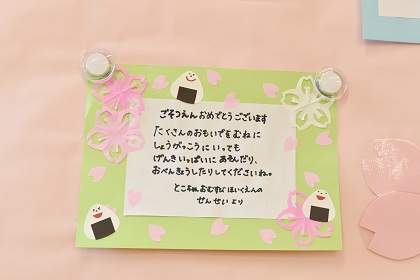 ごそつえんおめでとうございます
たくさんのおもいでをむねに
しょうがっこうにいっても
げんきいっぱいにあそんだり、
おべんきょうしたりしてくださいね。
おむすびほいくえんの
せんせいより